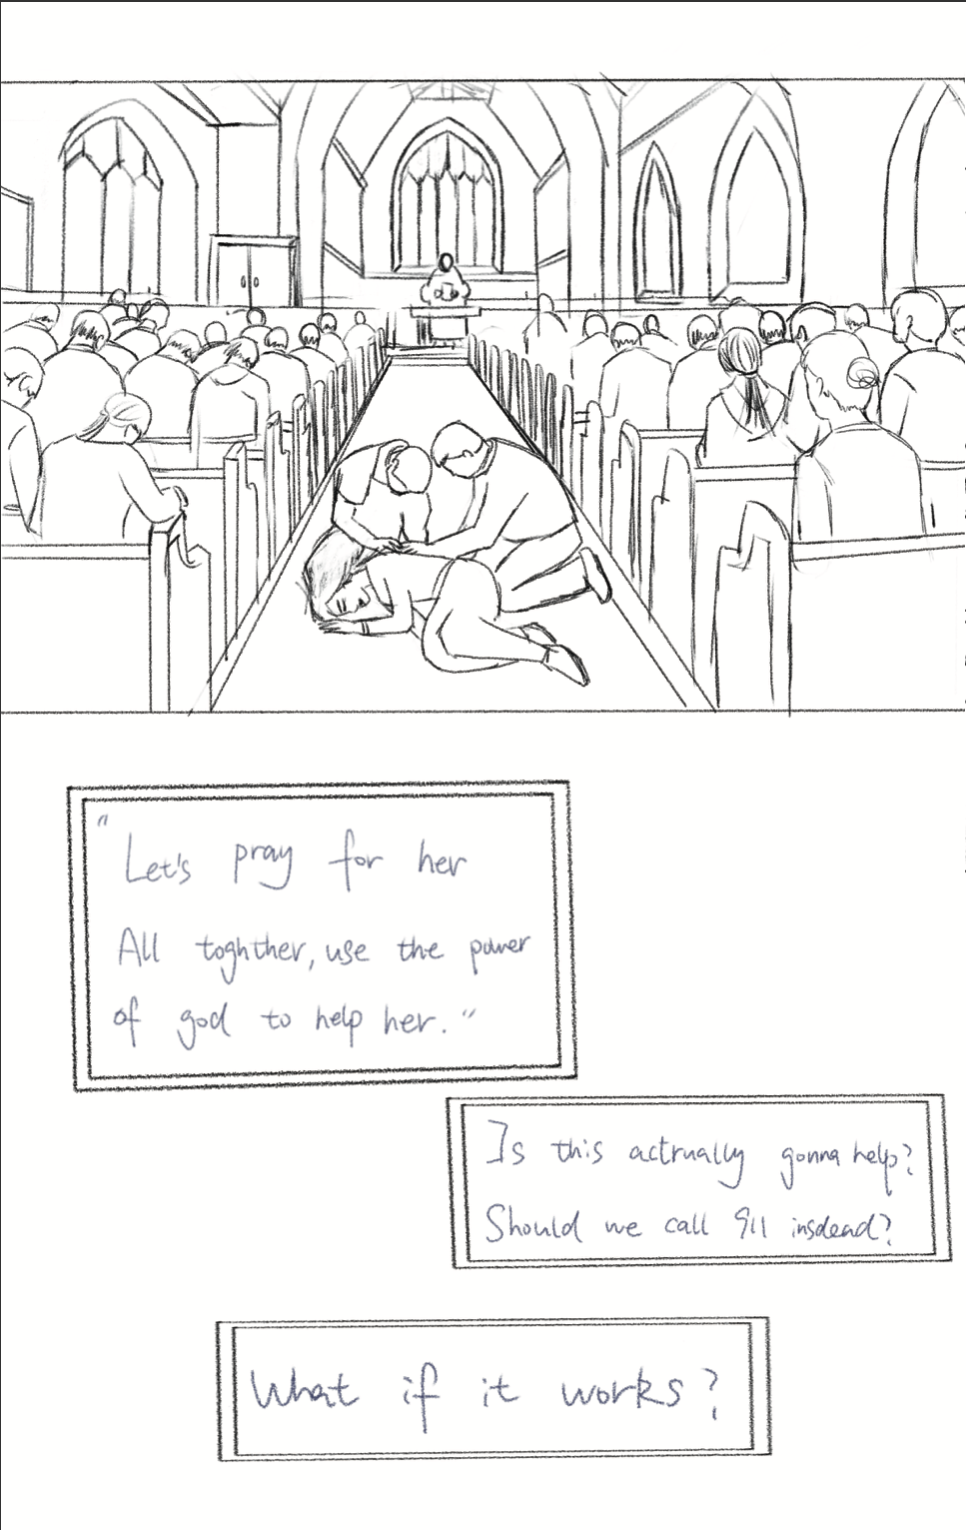 "Let's pray for her
All toghther, use the power
of god to help her."
Is this actrually gonna help?
Should we call 911 insdead?
What if it works?